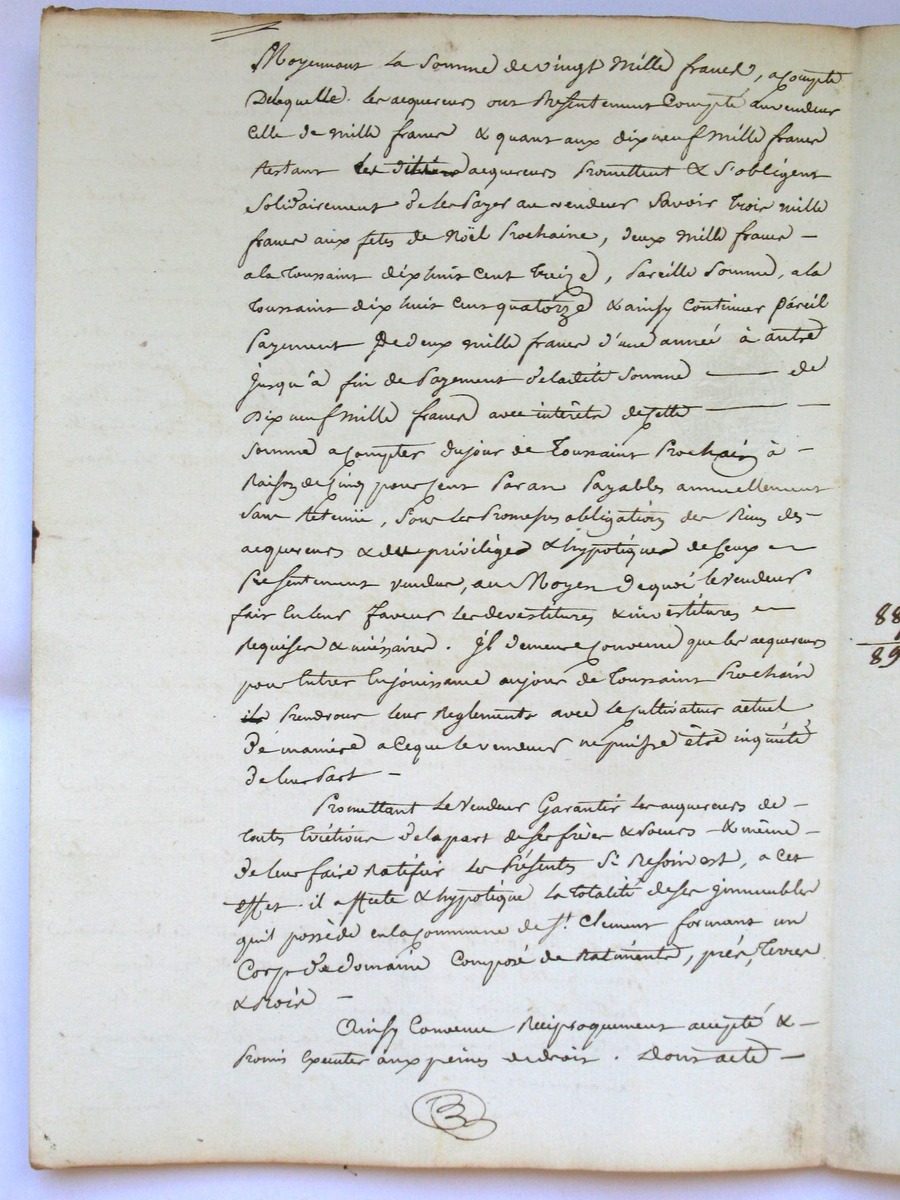 Moyennant La Somme de vingt mille francs, a Compte
De laquelle. les acquereurs ont Présentement Compté au vendeur
Celle de mille francs & quant aux dix neuf Mille francs
Restant les acquereurs Promettent & S'obligent
Solidairement de les Payer au vendeur Savoir trois mille
francs aux fetes de Noël Prochaine, deux Mille francs —
a la toussaint dix huit Cent treize, Pareille Somme, a la
toussaint dix huit Cent quatorze & ainsy Continuer Pareil
Payement De deux mille francs d'une année à autre
Jusqu'à fin de Payement de ladite Somme —— de
Dix neuf Mille francs avec intérêts de Celle —— —
Somme a Compter du jour de Toussaint Prochain à —
Raison de Cinq pour Cent Par an Payables annuellement
Sans Retenüe, Sous les Promesses obligations des Biens des
acquereurs & du privilége & hypotéque de Ceux —
Présentement vendus, au Moyen de quoi le Vendeur
fait En leur faveur les devestitures & investitures —
Requises & nécessaires. Il demeure Convenu que les acquereurs
pour Entrer En jouissance au jour de Toussaint Prochain
ils Prendront leur Reglements avec le Cultivateur actuel
De maniere a Ce que le vendeur ne puisse être inquiété
de leur Part —
Promettant le Vendeur Garantir les acquereurs de —
touts Evictions de la part de Ses frères & Soeurs — & même —
De leur faire Ratifier les Présentes Si Besoin est, a Cet
effet. il affecte & hypotéque la totalité de Ses immeubles
qu'il possède en la Commune de St. Clement formant un
Corps De domaine Composé de Batiments, prés, terres
& Bois —
Ainsy Convenu Réciproquement accepté & —
Promis Executer aux peines de droit. Dont acte —
88
89